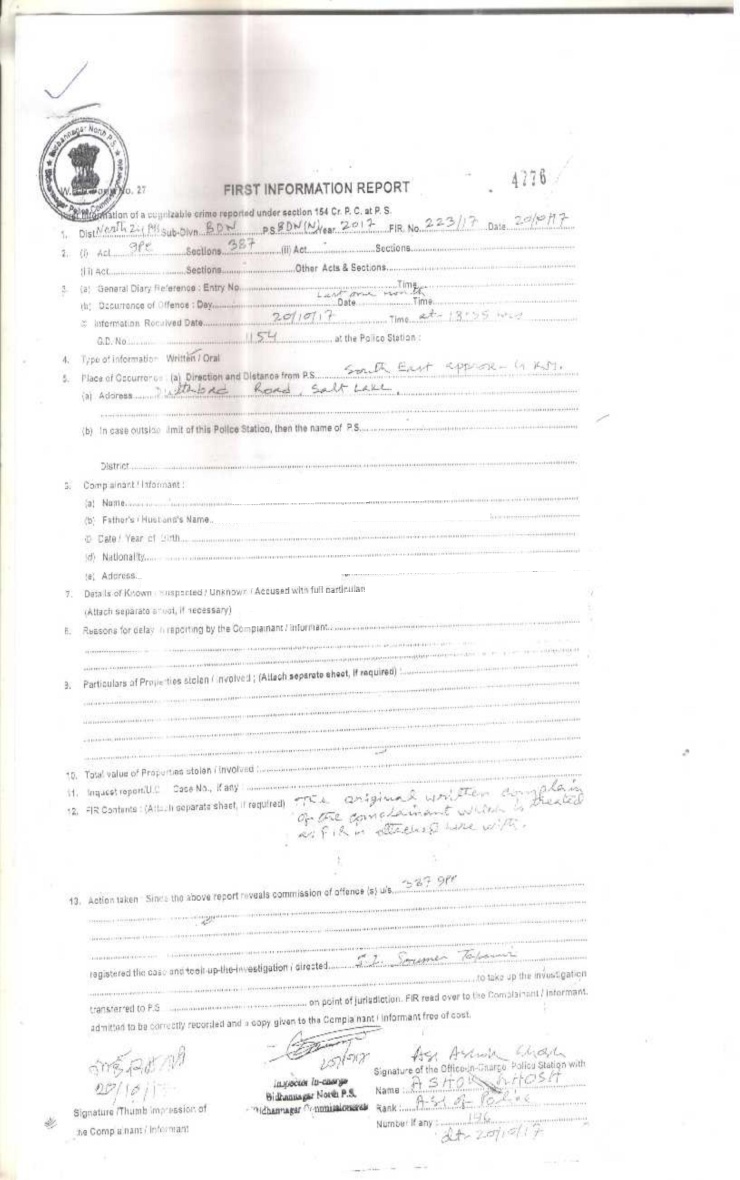 Bidhannagar North P.S.
Bidhannagar Police Commissionerate
4776
No. 27
FIRST INFORMATION REPORT
of a cognizable crime reported under section 154 Cr. P. C. at P. S.
1. Dist North 24 Sub-Divn. BDN P.S BDN(N) Year 2017 FIR. No. 223/17 Date 20/10/17
2. (i) Act IPC Sections 387 (ii) Act Sections
(iii) Act Sections Other Acts & Sections
3. (a) General Diary Reference : Entry No. Time
Last one month
(b) Occurrence of Offence : Day Date Time
© Information Received Date 20/10/17 Time at
G.D. No. 1154 at the Police Station :
4. Type of information Written / Oral
5. Place of Occurrence : (a) Direction and Distance from P.S. South East approx
(a) Address Road, Salt Lake,
(b) In case outside limit of this Police Station, then the name of P.S.
District
6. Complainant / Informant :
(a) Name
(b) Father's / Husband's Name
© Date / Year of Birth
(d) Nationality
(e) Address
7. Details of Known / Suspected / Unknown / Accused with full particulars
(Attach separate sheet, if necessary)
8. Reasons for delay in reporting by the Complainant / Informant
9. Particulars of Properties stolen / involved ; (Attach separate sheet, if required) :
10. Total value of Properties stolen / involved :
11. Inquest report/U.D. Case No., if any :
12. FIR Contents : (Attach separate sheet, if required) The original written complain
of the complainant which is treated
as FIR is attached here with.
13. Action taken Since the above report reveals commission of offence (s) u/s. 387 IPC
registered the case and took up the investigation / directed S.I.
to take up the investigation
transferred to P.S on point of jurisdiction. FIR read over to the Complainant / informant.
admitted to be correctly recorded and a copy given to the Complainant / Informant free of cost.
20/10/17
Signature /Thumb impression of
the Complainant / Informant
Inspector In-charge
Bidhannagar North P.S.
Bidhannagar Commissionerate
ASI Ashok Ghosh
Signature of the Officer-in-Charge, Police Station with
Name : ASHOK GHOSH
Rank : ASI of Police
Number if any : 196
dt- 20/10/17